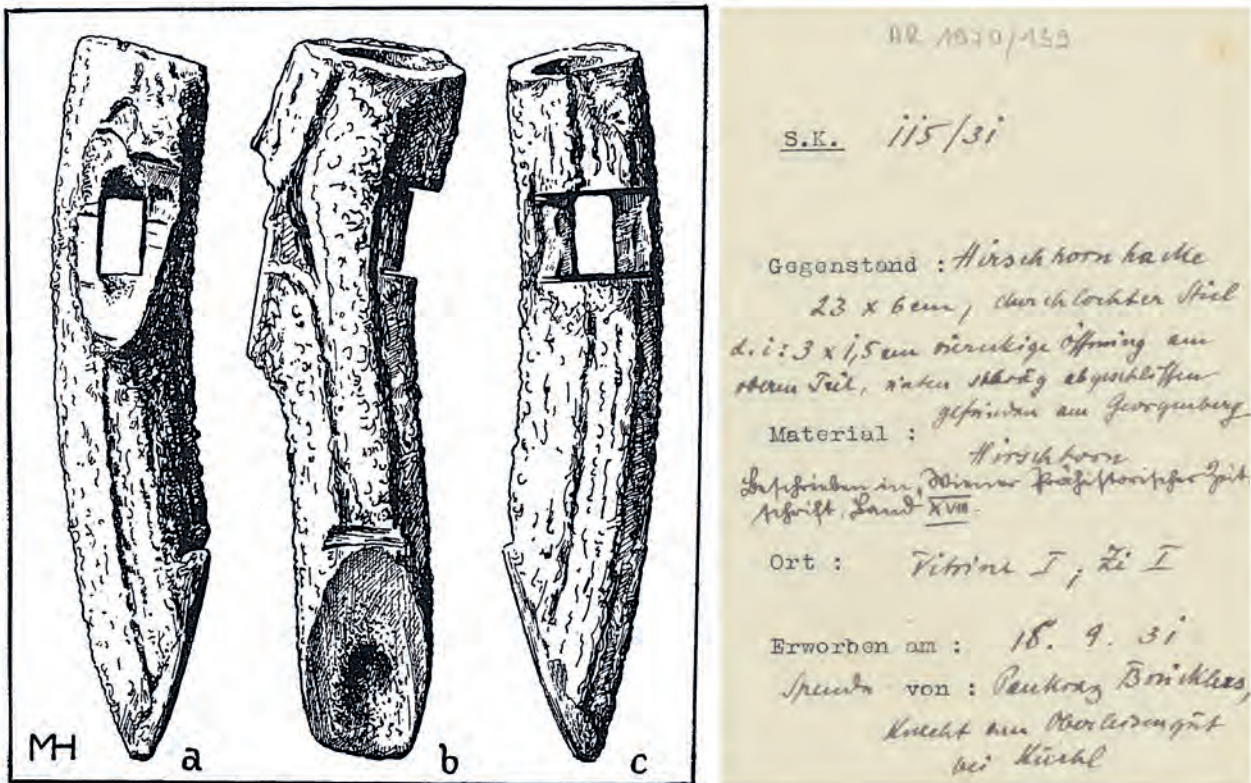 MH a b c
AR 1970/139
S.K. 115/31
Gegenstand : Hirschhornhacke
23 x 6 cm, durchlochter Stiel
d.i: 3 x 1,5 cm viereckige Öffnung am
oberen Teil, unten schräg abgeschliffen
gefunden am Georgenberg
Material :
Hirschhorn
Beschrieben in, Wiener Prähistorischer Zeit
schrift, Band XVIII.
Ort : Vitrine I, Zi I
Erworben am : 18. 9. 31
Spende von : Pankraz
Knecht am
bei Kuchl